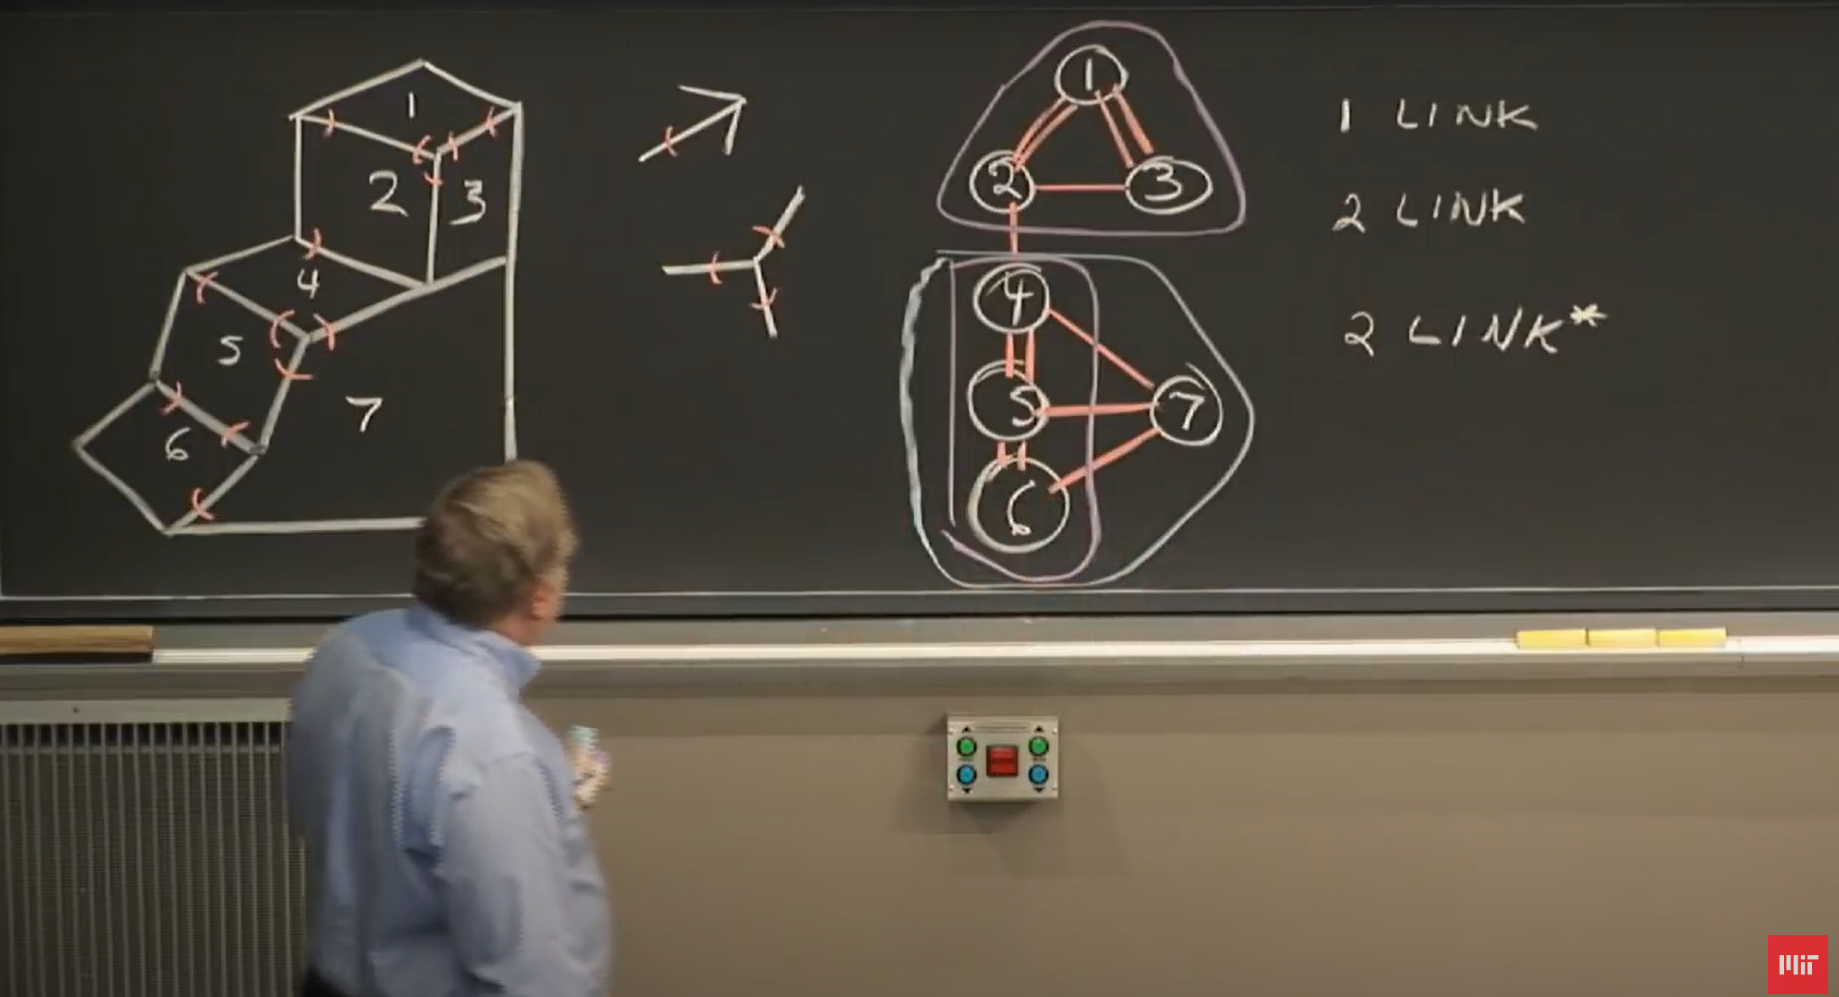 1
2 3
4
5
6
7
1
2 3
4
5 7
6
1 LINK
2 LINK
2 LINK*
MIT